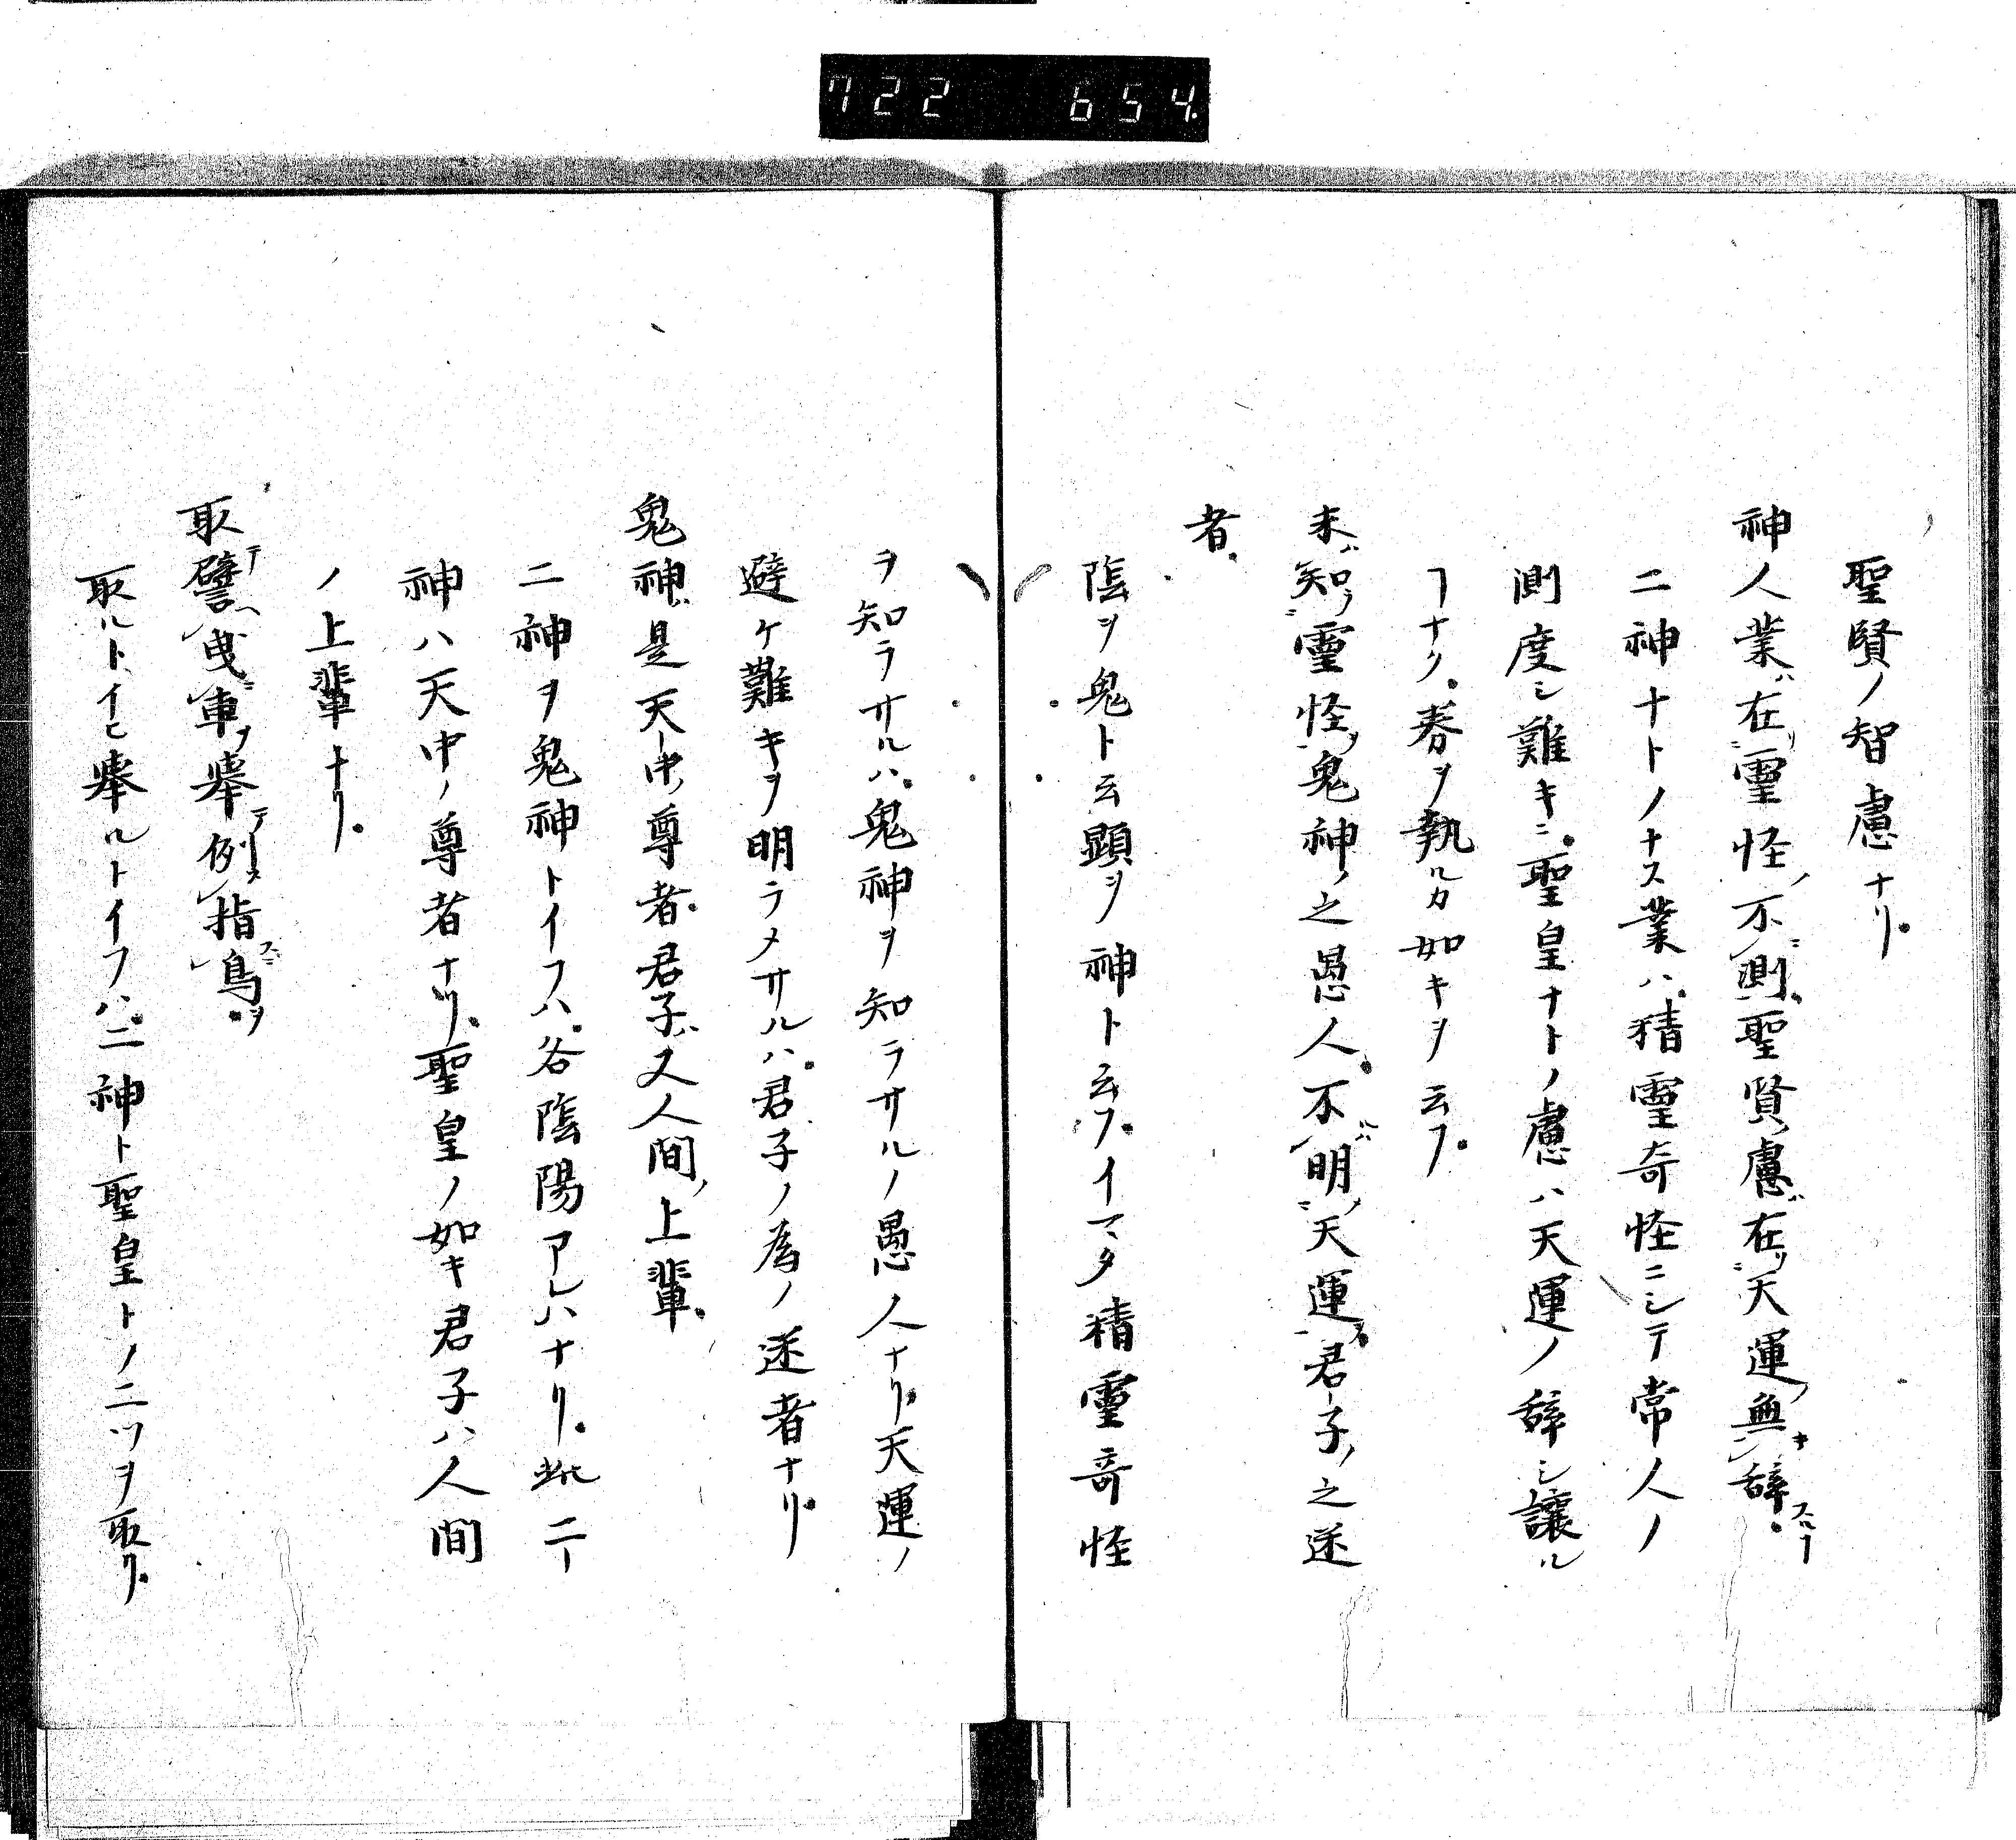 722 654
聖賢ノ智慮ナリ。
神人業ハ在リ霊怪ノ不ニ測。聖賢慮ハ在リ天運ノ無キニ辞スルヿ。
二神ナトノナス業ハ。精霊奇怪ニシテ常人ノ
測度シ難キニ。聖皇ナトノ慮ハ天運ノ辞シ譲ル
ヿナク。春ヲ執ルカ如キヲ云フ。
未ハ知ラ霊怪ノ鬼神ヲ之愚人。不ハ明ニ天運ヲ君子ノ之迷
者。
陰ヲ鬼ト云顕ヲ神ト云フ。イマタ精霊奇怪
ヲ知ラサルハ。鬼神ヲ知ラサルノ愚人ナリ。天運ノ
避ケ難キヲ明ラメサルハ。君子ノ為ノ迷者ナリ。
鬼神ハ是天中ノ尊者。君子ハ又人間ノ上輩。
二神ヲ鬼神トイフハ。各陰陽アレハナリ。此二
神ハ天中ノ尊者ナリ。聖皇ノ如キ君子ハ人間
ノ上輩ナリ。
取テ譬ヘ曳車ヲ。挙テ例ス指スニ鳥ヲ。
取ルトイヒ挙ルトイフハ。二神ト聖皇トノ二ツヲ取リ。